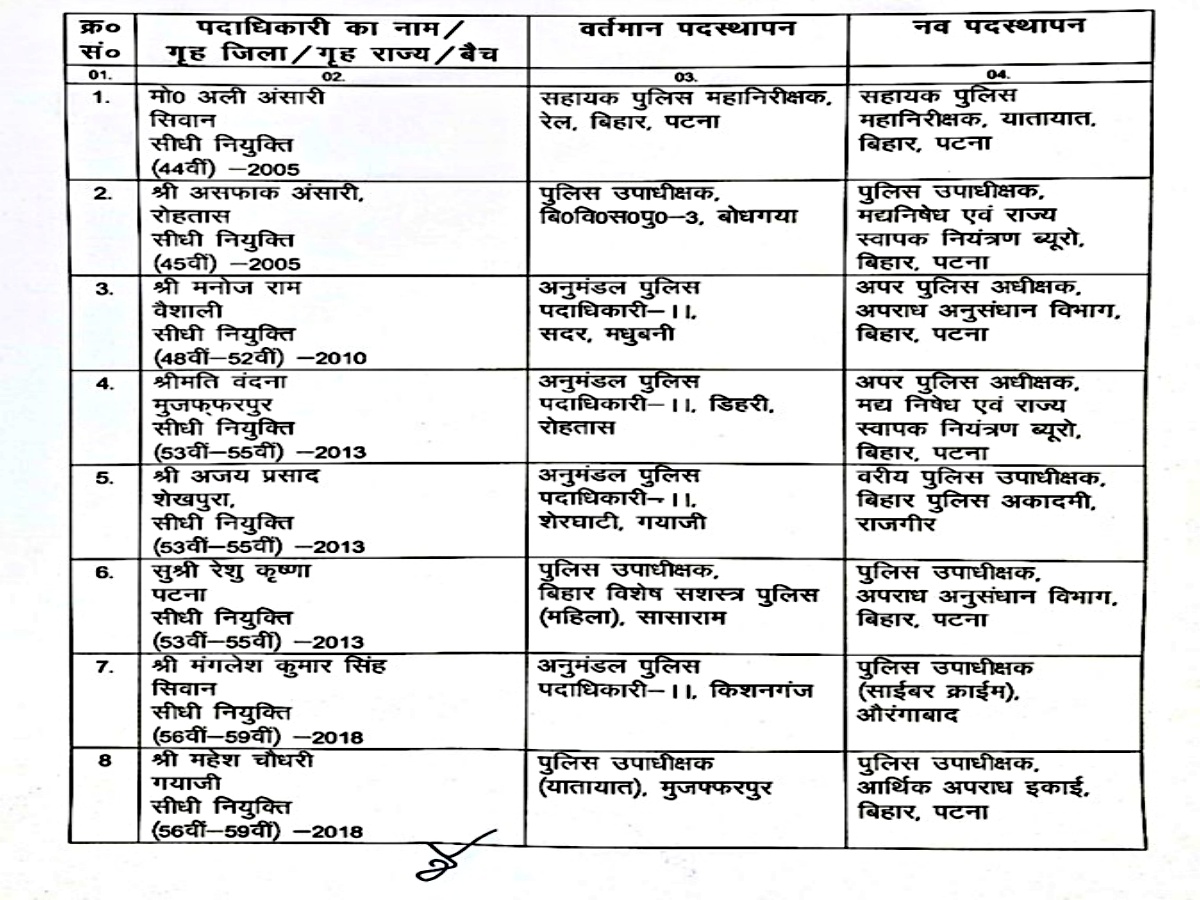 क्र०
सं०
पदाधिकारी का नाम/
गृह जिला/गृह राज्य/बैच
वर्तमान पदस्थापन
नव पदस्थापन
01.
02.
03.
04.
1.
मो0 अली अंसारी
सिवान
सीधी नियुक्ति
(44वीं) –2005
सहायक पुलिस महानिरीक्षक,
रेल, बिहार, पटना
सहायक पुलिस
महानिरीक्षक, यातायात,
बिहार, पटना
2.
श्री असफाक अंसारी,
रोहतास
सीधी नियुक्ति
(45वीं) –2005
पुलिस उपाधीक्षक,
बि0वि0स0पु0–3, बोधगया
पुलिस उपाधीक्षक,
मद्यनिषेध एवं राज्य
स्वापक नियंत्रण ब्यूरो,
बिहार, पटना
3.
श्री मनोज राम
वैशाली
सीधी नियुक्ति
(48वीं–52वीं) –2010
अनुमंडल पुलिस
पदाधिकारी–।।,
सदर, मधुबनी
अपर पुलिस अधीक्षक,
अपराध अनुसंधान विभाग,
बिहार, पटना
4.
श्रीमति वंदना
मुजफ्फरपुर
सीधी नियुक्ति
(53वीं–55वीं) –2013
अनुमंडल पुलिस
पदाधिकारी–।।, डिहरी,
रोहतास
अपर पुलिस अधीक्षक,
मद्य निषेध एवं राज्य
स्वापक नियंत्रण ब्यूरो,
बिहार, पटना
5.
श्री अजय प्रसाद
शेखपुरा,
सीधी नियुक्ति
(53वीं–55वीं) –2013
अनुमंडल पुलिस
पदाधिकारी–।।,
शेरघाटी, गयाजी
वरीय पुलिस उपाधीक्षक,
बिहार पुलिस अकादमी,
राजगीर
6.
सुश्री रेशु कृष्णा
पटना
सीधी नियुक्ति
(53वीं–55वीं) –2013
पुलिस उपाधीक्षक,
बिहार विशेष सशस्त्र पुलिस
(महिला), सासाराम
पुलिस उपाधीक्षक,
अपराध अनुसंधान विभाग,
बिहार, पटना
7.
श्री मंगलेश कुमार सिंह
सिवान
सीधी नियुक्ति
(56वीं–59वीं) –2018
अनुमंडल पुलिस
पदाधिकारी–।।, किशनगंज
पुलिस उपाधीक्षक
(साईबर क्राईम),
औरंगाबाद
8
श्री महेश चौधरी
गयाजी
सीधी नियुक्ति
(56वीं–59वीं) –2018
पुलिस उपाधीक्षक
(यातायात), मुजफ्फरपुर
पुलिस उपाधीक्षक,
आर्थिक अपराध इकाई,
बिहार, पटना